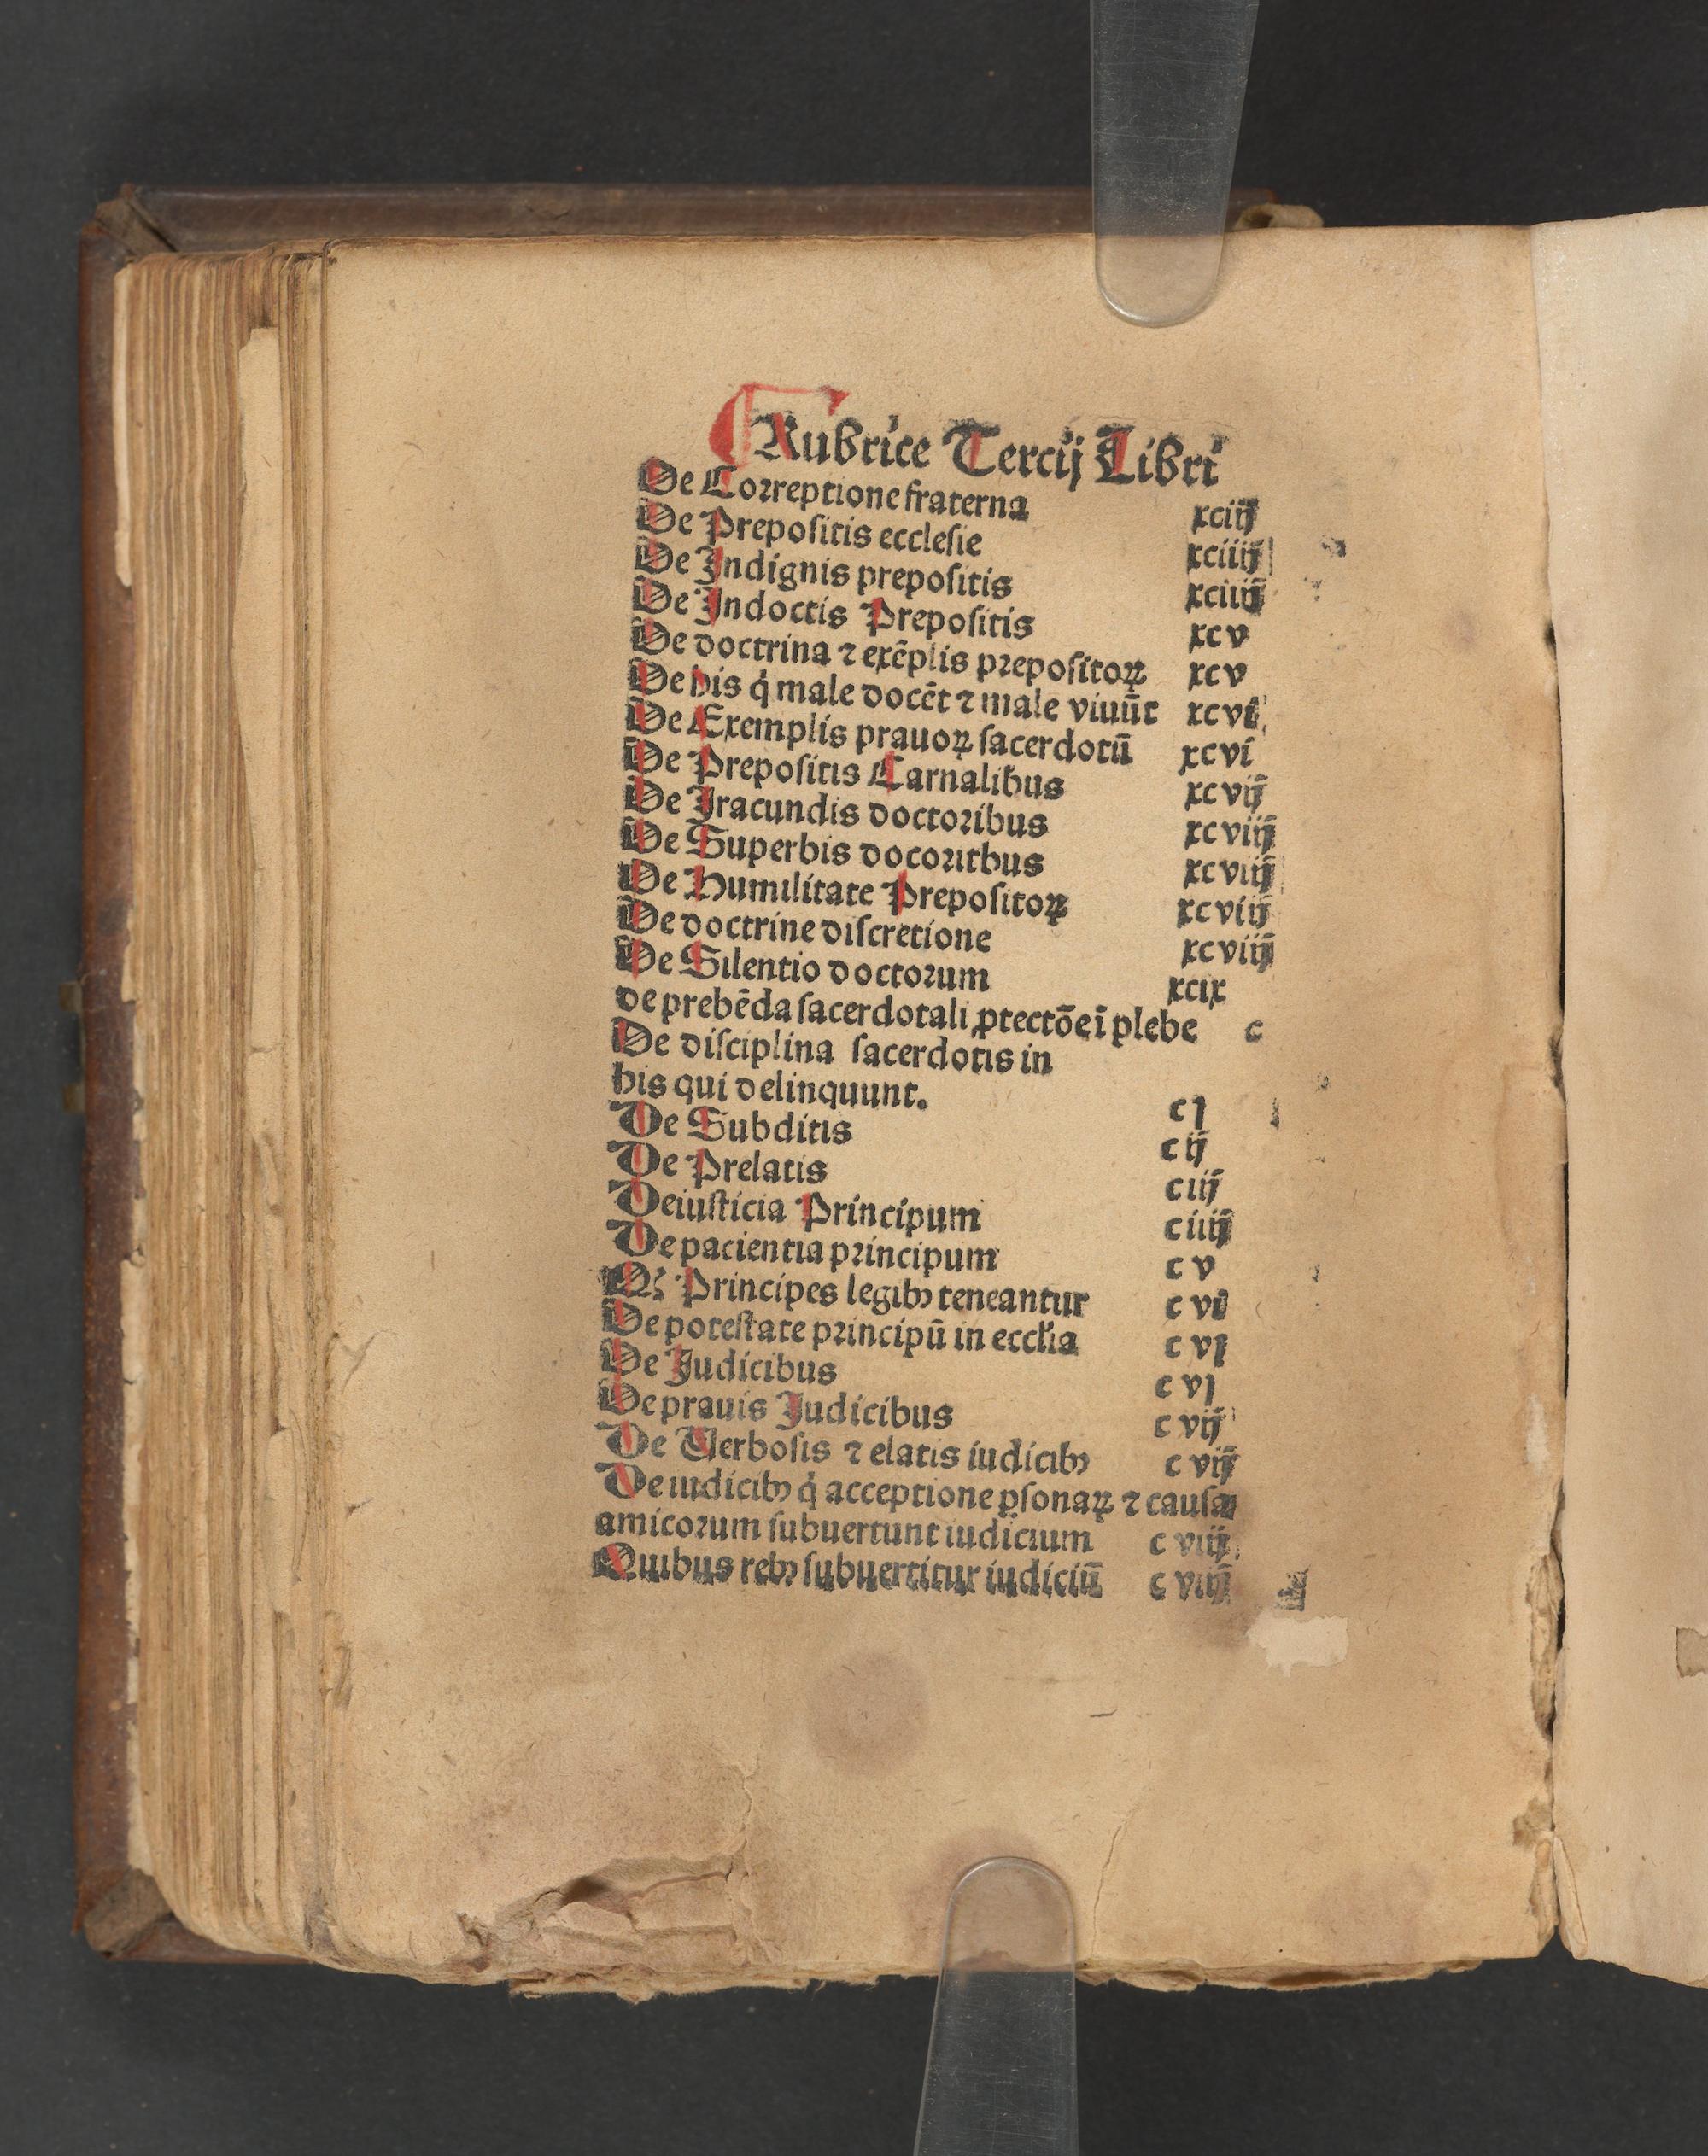 Rubrice Tercij Libri
De Correptione fraterna xciij
De Prepositis ecclesie xciiij
De Indignis prepositis xciiij
De Indoctis Prepositis xcv
De doctrina ⁊ exẽplis prepositoꝝ xcv
De his q̇ male docẽt ⁊ male viuũt xcvi
De Exemplis prauoꝝ sacerdotũ xcvi
De Prepositis Carnalibus xcvij
De Iracundis doctoribus xcviij
De Superbis docoribus xcviij
De Humilitate Prepositoꝝ xcviij
De doctrine discretione xcviij
De Silentio doctorum xcix
de prebẽda sacerdotali ꝓtectõe ĩ plebe c
De disciplina sacerdotis in
his qui delinquunt. cj
De Subditis cij
De Prelatis ciij
De iusticia Principum ciiij
De pacientia principum cv
Qꝫ Principes legibꝰ teneantur cvi
De potestate principũ in eccl'ia cvj
De Judicibus cvj
De prauis Judicibus cvij
De Verbosis ⁊ elatis iudicibꝰ cvij
De iudicibꝰ q̇ acceptione ꝑsonaꝝ ⁊ causa
amicorum subuertunt iudicium cviij
Quibus rebꝰ subuertitur iudiciũ cviij